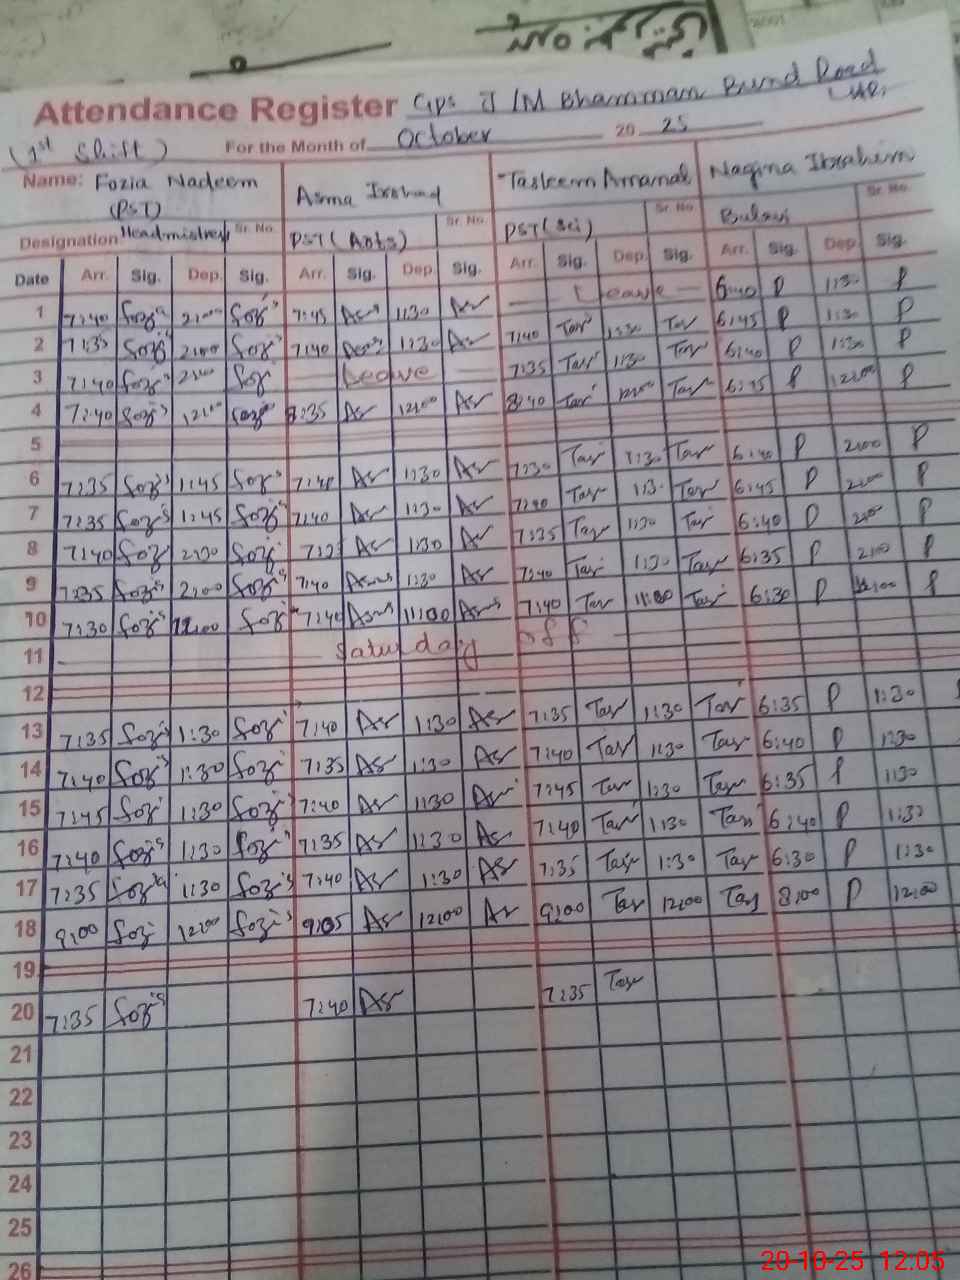 Attendance Register Gps J/M Bhamman Bund Road
Lhr.
(1st Shift) For the Month of October 20 25
Name: Fozia Nadeem Asma Irshad Tasleem Amanat Nagina Ibrahim
(PST)
Designation Headmistress Sr. No. PST (Arts) Sr. No. PST (Sci) Sr. No. Sr. No.
Date Arr. Sig. Dep. Sig. Arr. Sig. Dep. Sig. Arr. Sig. Dep. Sig. Arr. Sig. Dep. Sig.
1 7:40 2:00 7:45 As 1:30 As Leave 6:40 P 1:30 P
2 7:35 2:00 7:40 1:30 As 7:40 Tas 1:30 Tas 6:45 P 1:30 P
3 7:40 2:00 Leave 7:35 Tas 1:30 Tas 6:40 P 1:30 P
4 7:40 12:00 8:35 As 12:00 As 8:40 Tas 12:00 Tas 6:45 P 12:00 P
5
6 7:35 1:45 7:40 As 1:30 As 7:30 Tas 1:30 Tas 6:40 P 2:00 P
7 7:35 1:45 7:40 As 1:30 As 7:40 Tas 1:30 Tas 6:45 P 2:00 P
8 7:40 As 1:30 As 7:35 Tas 1:30 Tas 6:40 P 2:00 P
9 7:35 2:00 7:40 1:30 As 7:40 Tas 1:30 Tas 6:35 P 2:00 P
10 7:30 7:40 11:00 7:40 Tas 11:00 Tas 6:30 P P
11 Saturday off
12
13 7:35 1:30 7:40 As 1:30 As 7:35 Tas 1:30 Tas 6:35 P 1:30
14 7:40 1:30 7:35 As 1:30 As 7:40 Tas 1:30 Tas 6:40 P 1:30
15 7:45 1:30 7:40 As 1:30 As 7:45 Tas 1:30 Tas 6:35 P 1:30
16 7:40 1:30 7:35 As 1:30 As 7:40 Tas 1:30 Tas 6:40 P 1:30
17 7:35 1:30 7:40 As 1:30 As 7:35 Tas 1:30 Tas 6:30 P 1:30
18 9:00 12:00 9:05 As 12:00 As 9:00 Tas 12:00 Tas 8:00 P 12:00
19
20 7:35 7:40 As 7:35 Tas
21
22
23
24
25
26
20-10-25 12:05